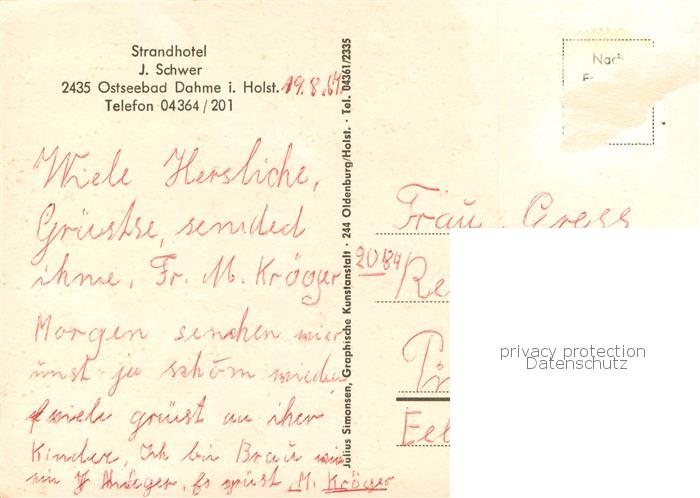 Strandhotel
J. Schwer
2435 Ostseebad Dahme i. Holst. 19.8.
Telefon 04364/201
Wiele Hersliche,
Grüstse, sended
ihme, Fr. M. Kröger
Morgen senhen wier
unst ja schöm wieder,
wiele grüst an iher
Kinder, Ich bin Braun wie
ein Es grüst M. Kröger
Julius Simonsen, Graphische Kunstanstalt · 244 Oldenburg/Holst. · Tel. 04361/2335
Nach
Frau Gress
2084
Re
Pin
Eel
privacy protection
Datenschutz